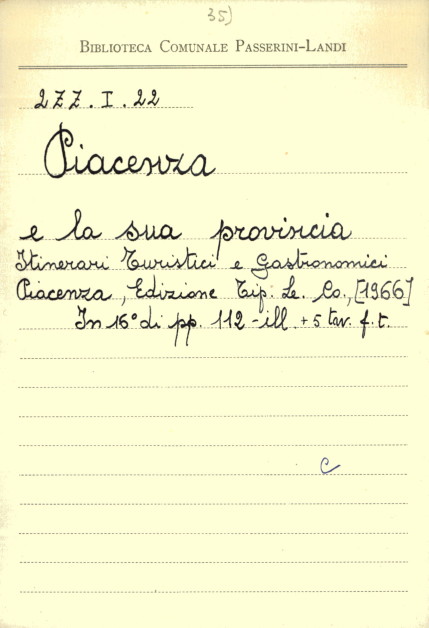 35)
BIBLIOTECA COMUNALE PASSERINI-LANDI
2ZZ.I.22
Piacenza
e la sua provincia
Itinerari Turistici e Gastronomici
Piacenza, Edizione Tip. Le. Co., [1966]
In 16° di pp. 112 - ill. + 5 tav. f. t.
C